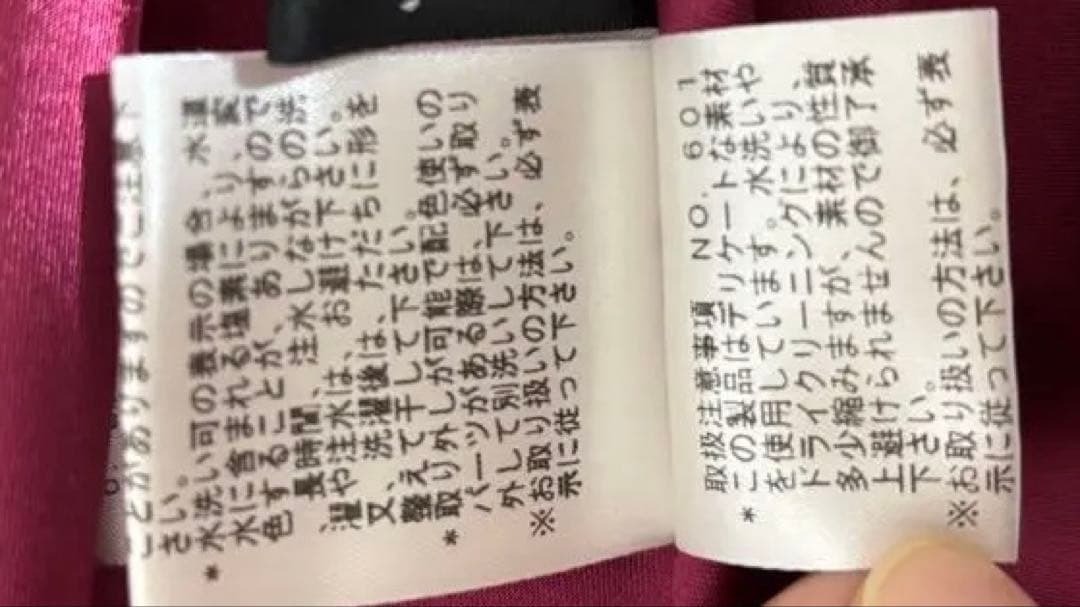 ことがありますのでご注意下
さい。
*水洗い可の表示の場合、水道
水に含まれる塩素により、変
色することがありますので
、長時間、注水しながらの洗
濯や注水は、お避け下さい。
又、洗濯後は、ただちに形を
整えて干して下さい。
*取り外しが可能で配色使いの
パーツがある際は、必ず取り
外して別洗いして下さい。
※お取り扱いの方法は、必ず表
示に従って下さい。
取扱注意事項 NO. 601
*この製品はデリケートな素材
を使用しています。水洗いや
ドライクリーニングにより、
多少縮みますが、素材の性質
上避けられませんので御了承
下さい。
※お取り扱いの方法は、必ず表
示に従って下さい。